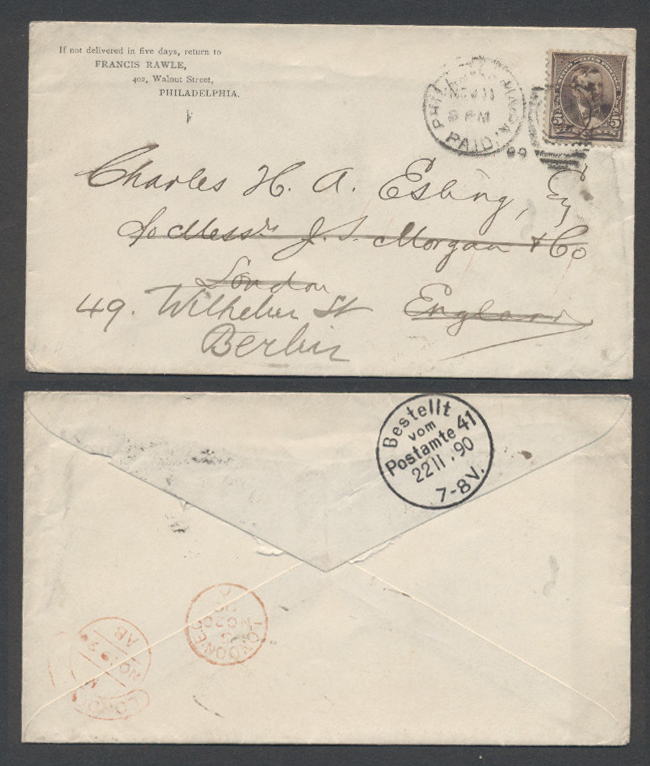 If not delivered in five days, return to
FRANCIS RAWLE,
402, Walnut Street,
PHILADELPHIA.
PHILADELPHIA, PA.
NOV 11
PM
PAID.
90
5 5
Charles H. A. Esling, Esq
c/o Messrs J. S. Morgan & Co
London
England
49. Wilhelm St
Berlin
Bestellt
vom
Postamte 41
22 11 . 90
7-8V.
LONDON E.C
NO 20
90
AB